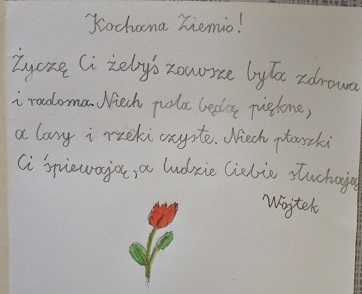 Kochana Ziemio!
Życzę Ci żebyś zawsze była zdrowa
i radosna. Niech pola będą piękne,
a lasy i rzeki czyste. Niech ptaszki
Ci śpiewają, a ludzie Ciebie słuchają
Wojtek